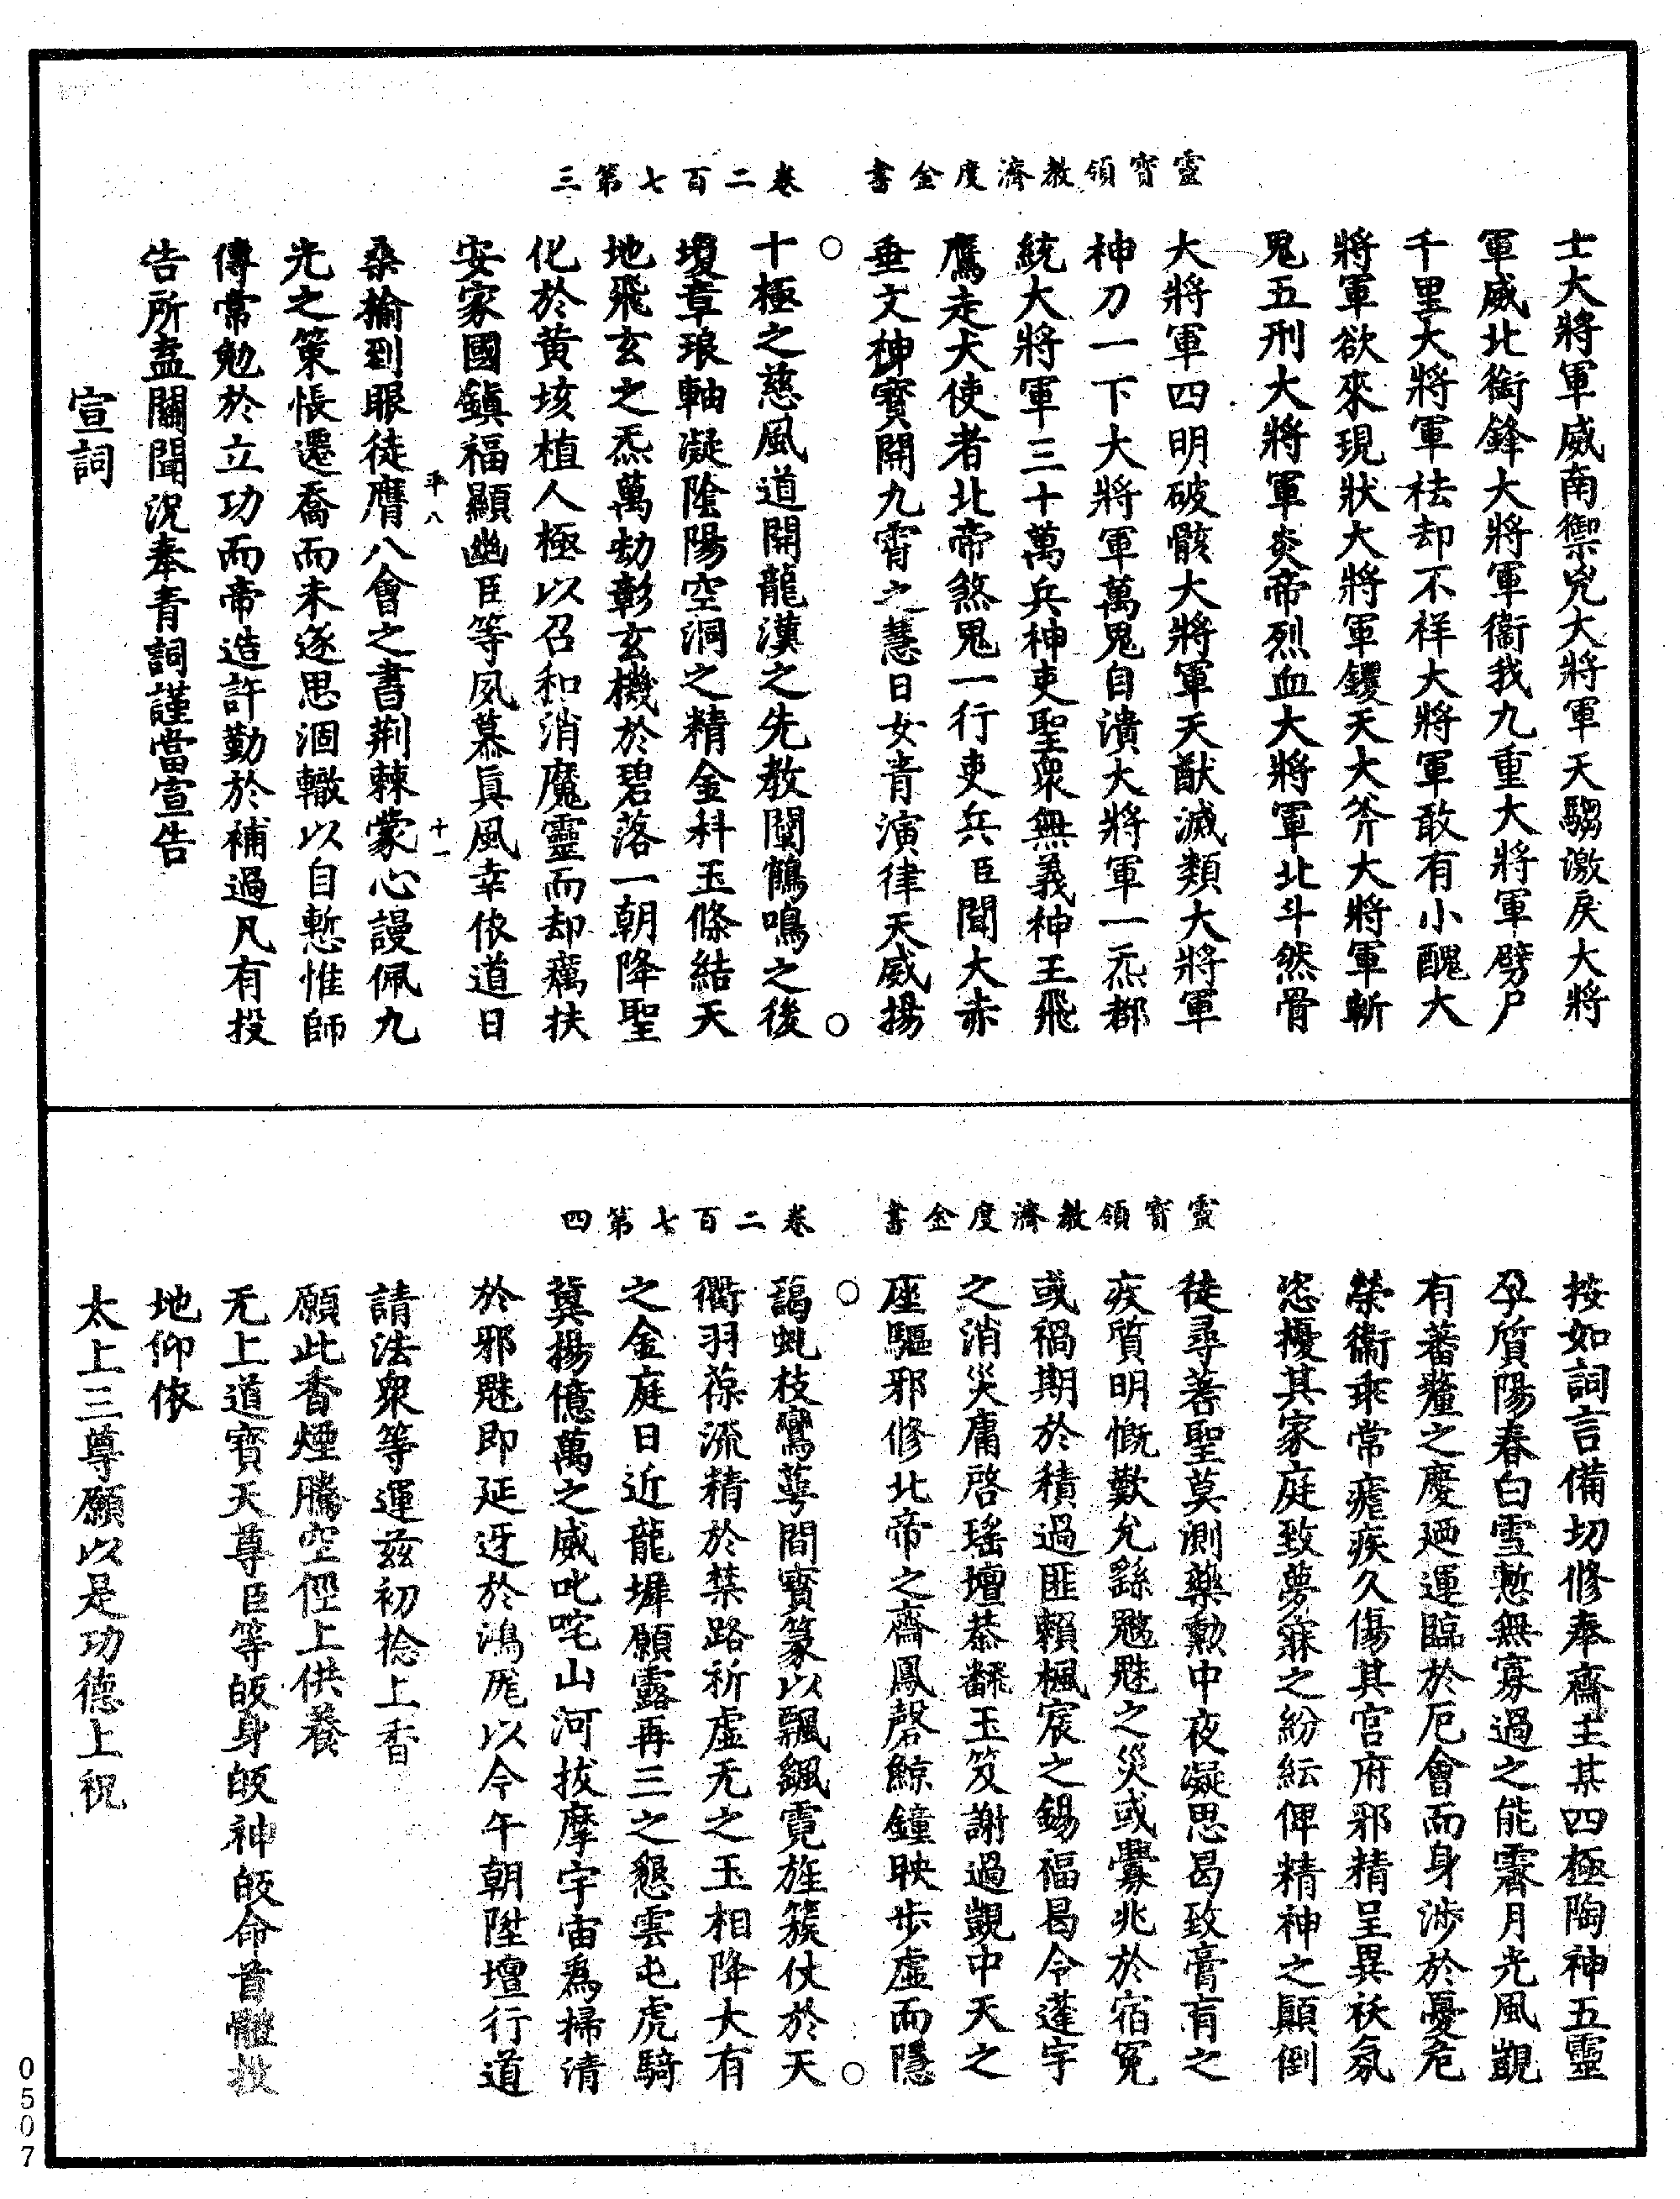 靈寶領教濟度金書　卷二百七第三
士大將軍威南禦兇大將軍天騶激戾大將
軍威北銜鋒大將軍衞我九重大將軍劈尸
千里大將軍祛却不祥大將軍敢有小醜大
將軍欲來現狀大將軍钁天大斧大將軍斬
鬼五刑大將軍炎帝烈血大將軍北斗然骨
大將軍四明破骸大將軍天猷滅類大將軍
神刀一下大將軍萬鬼自潰大將軍一炁都
統大將軍三十萬兵神吏聖衆無義神王飛
鷹走犬使者北帝煞鬼一行吏兵臣聞大赤
垂文神寳開九霄之慧日女青演律天威揚
十極之慈風道開龍漢之先教闡鶴鳴之後
瓊章琅軸凝陰陽空洞之精金科玉條結天
地飛玄之炁萬劫彰玄機於碧落一朝降聖
化於黄垓植人極以召和消魔靈而却癘扶
安家國鎮福顯幽臣等夙慕眞風幸依道日
平八　十一
桑榆到眼徒膺八會之書荆棘蒙心謾佩九
光之策悵遷喬而未遂思涸轍以自慙惟師
傳常勉於立功而帝造許勤於補過凡有投
告所盍關聞況奉青詞謹當宣告
宣詞
靈寶領教濟度金書　卷二百七第四
按如詞言備切修奉齋主某四極陶神五靈
孕質陽春白雪慙無寡過之能霽月光風覬
有蕃釐之慶廼運臨於厄會而身涉於憂危
榮衞乖常瘧疾久傷其宫府邪精呈異祅氛
恣擾其家庭致夢寐之紛紜俾精神之顛倒
徒尋蓍聖莫測藥勲中夜凝思曷致膏肓之
疾質明慨歎允繇魑魅之災或釁兆於宿寃
或禍期於積過匪賴楓宸之錫福曷令蓬宇
之消災庸啓瑤壇恭繙玉笈謝過覲中天之
座驅邪修北帝之齋鳳磬鯨鐘映步虛而隱
謁虬枝鸞蕚間寳篆以飄颻霓旌簇仗於天
衢羽葆流精於禁路祈虛无之玉相降大有
之金庭日近龍墀願露再三之懇雲屯虎騎
冀揚億萬之威叱咤山河拔摩宇宙爲掃清
於邪魅即延迓於鴻厖以今午朝陞壇行道
請法衆等運玆初捻上香
願此香煙騰空徑上供養
无上道寳天尊臣等皈身皈神皈命首體投
地仰依
太上三尊願以是功德上祝
0507